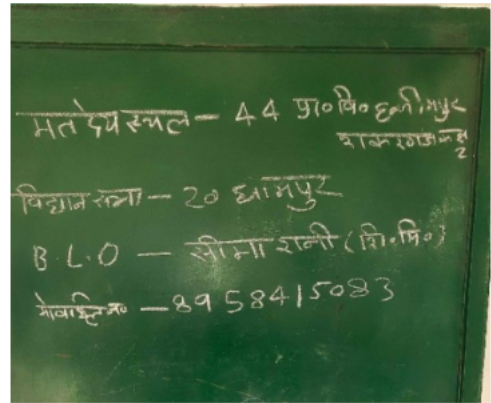 मत देय स्थल - 44 प्रा० वि० हकीमपुर
विधान सभा - 20 धामपुर
B.L.O - सीमा रानी (शि.मि०)
मोबाईल न० - 8958415083